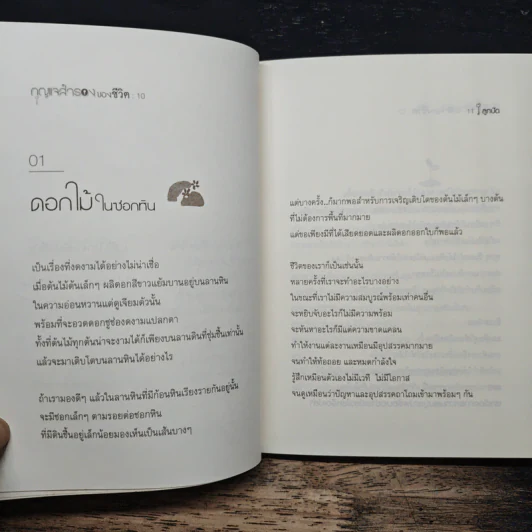 กุญแจสำรองของชีวิต : 10
01
ดอกไม้ ในซอกหิน
เป็นเรื่องที่งดงามได้อย่างไม่น่าเชื่อ
เมื่อต้นไม้ต้นเล็กๆ ผลิดอกสีขาวแย้มบานอยู่บนลานหิน
ในความอ่อนหวานแต่ดูเจียมตัวนั้น
พร้อมที่จะอวดดอกชูช่องดงามแปลกตา
ทั้งที่ต้นไม้ทุกต้นน่าจะงามได้ก็เพียงบนลานดินที่ชุ่มชื้นเท่านั้น
แล้วจะมาเติบโตบนลานหินได้อย่างไร
ถ้าเรามองดีๆ แล้วในลานหินที่มีก้อนหินเรียงรายกันอยู่นั้น
จะมีซอกเล็กๆ ตามรอยต่อซอกหิน
ที่มีดินชื้นอยู่เล็กน้อยมองเห็นเป็นเส้นบางๆ
11 :
แต่บางครั้ง...ก็มากพอสำหรับการเจริญเติบโตของต้นไม้เล็กๆ บางต้น
ที่ไม่ต้องการพื้นที่มากมาย
แค่ขอเพียงมีที่ได้เสียดยอดและผลิดอกออกใบก็พอแล้ว
ชีวิตของเราก็เป็นเช่นนั้น
หลายครั้งที่เราจะทำอะไรบางอย่าง
ในขณะที่เราไม่มีความสมบูรณ์พร้อมเท่าคนอื่น
จะหยิบจับอะไรก็ไม่มีความพร้อม
จะหันหาอะไรก็มีแต่ความขาดแคลน
ทำให้งานแต่ละงานเหมือนมีอุปสรรคมากมาย
จนทำให้ท้อถอย และหมดกำลังใจ
รู้สึกเหมือนตัวเองไม่มีเวที ไม่มีโอกาส
จนดูเหมือนว่าปัญหาและอุปสรรคถาโถมเข้ามาพร้อมๆ กัน